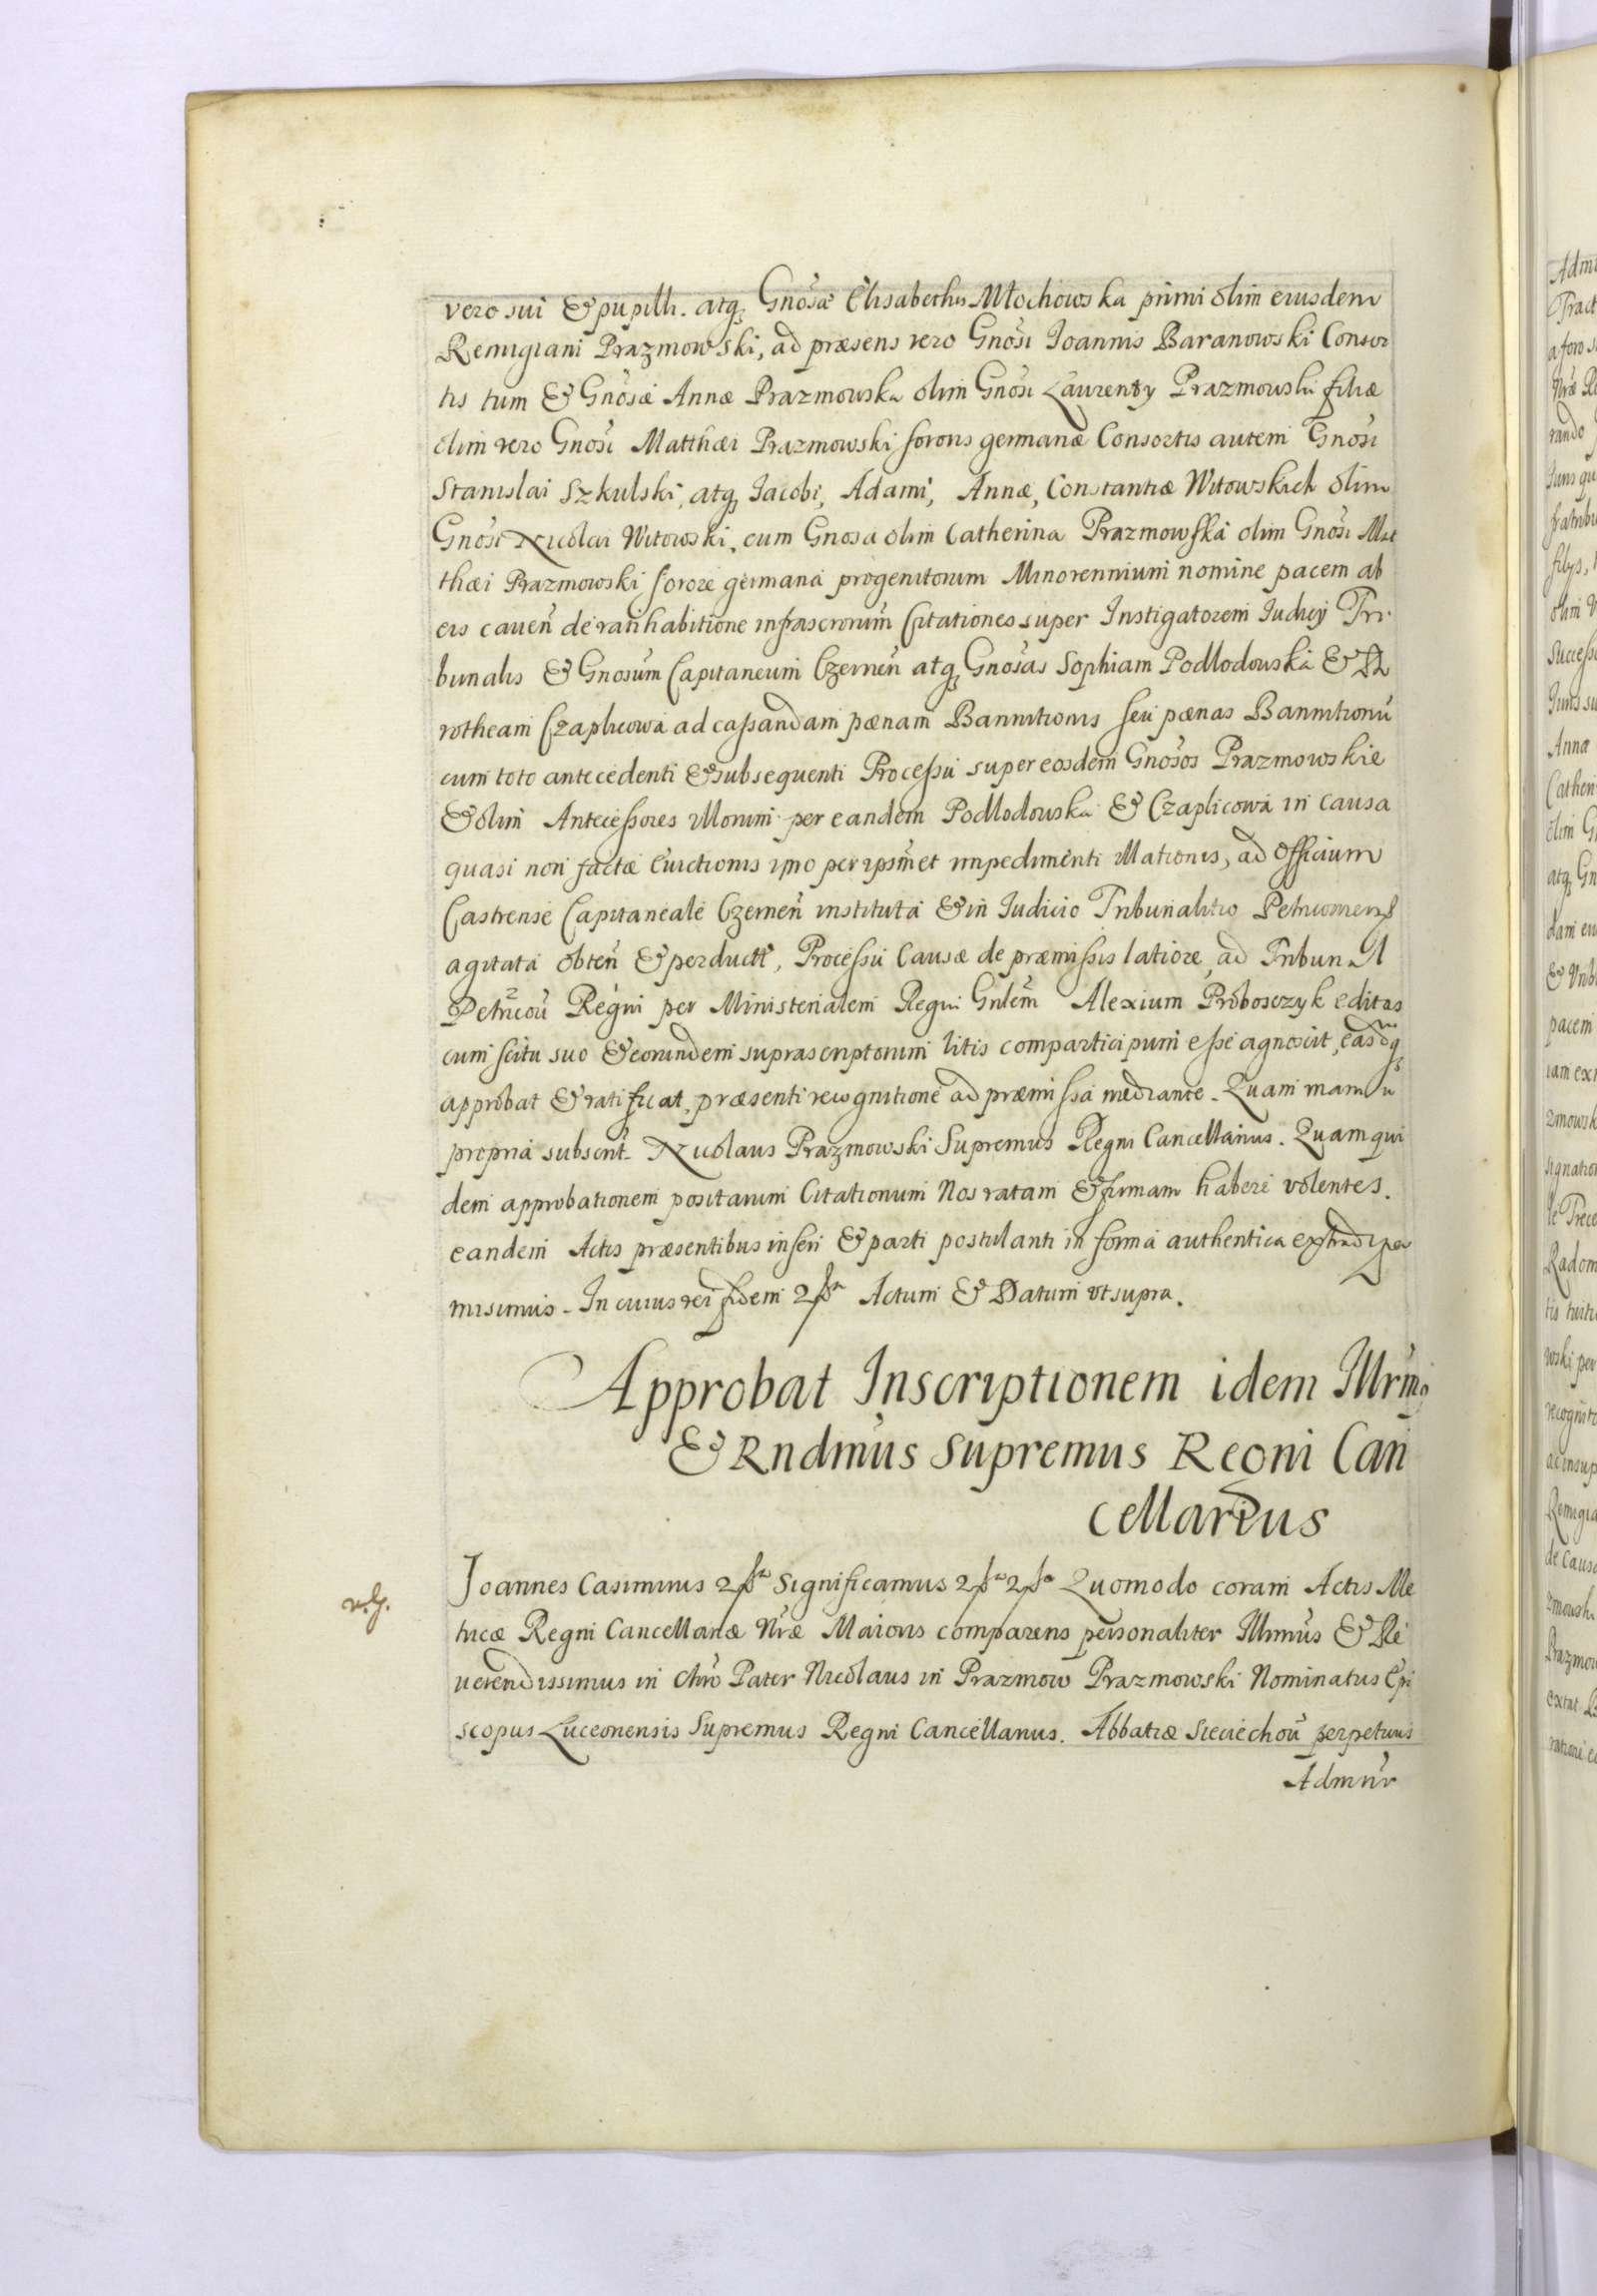 vero sui & pupilli. atq, Gnosæ Elisabethis Młochowska primi olim eiusdem
Remigiani Prazmowski, ad præsens vero Gnosi Ioannis Baranowski Consor
tis tum & Gnosæ Annæ Prazmowska olim Gnosi Laurenty Prazmowski filiæ
olim vero Gnosi Matthæi Prazmowski sororis germanæ Consortis autem Gnosi
Stanislai Szkulski, atq, Iacobi, Adami, Annæ, Constantiæ Witowskich olim
Gnosi Nicolai Witowski, cum Gnosa olim Catherina Prazmowska olim Gnosi Mat
thæi Prazmowski sorore germana progenitorum Minorennium nomine pacem ab
eis caven de ratihabitione infrascriorum Citationes super Instigatorem Iudicij Tri
bunalis & Gnosum Capitaneum Czernen atq, Gnosas Sophiam Podlodowska & Do
rotheam Czaplicowa ad cassandam pænam Bannitionis seu pænas Bannitionu
cum toto antecedenti & subsequenti Processu super eosdem Gnosos Prazmowskie
& olim Antecessores illorum per eandem Podlodowska & Czaplicowa in causa
quasi non factæ Evictionis imo per ipsmet impedimenti illationis, ad officium
Castrense Capitaneale Czernen instituta & in Iudicio Tribunalitio Petricoviens
agitata obten & perduct, Processu Causæ de præmissis latiore, ad Tribunal
Petricou Regni per Ministerialem Regni Gnlem Alexium Proboszyk editas
cum scitu suo & eorundem suprascriptorum litis comparticipum esse agnoscit, easdq,
approbat & ratificat, præsenti recognitione ad præmissa mediante. Quam manu
propria subscrit. Nicolaus Prazmowski Supremus Regni Cancellarius. Quam qui
dem approbationem positarum Citationum Nos ratam & firmam haberi volentes.
eandem Actis præsentibus inseri & parti postulanti in forma authentica extradi per
misimus. In cuius rei fidem 2ps Actum & Datum ut supra.
Approbat Inscriptionem idem Illrmg
& Rndmus Supremus Regni Can
cellarius
v.g.
Ioannes Casimirus 2ps Significamus 2ps 2ps Quomodo coram Actis Me
tricæ Regni Cancellariæ Nræ Maioris comparens personaliter Illmus & Re
verendissimus in Chro Pater Nicolaus in Prazmow Prazmowski Nominatus Epi
scopus Luceoriensis Supremus Regni Cancellarius. Abbatiæ Sieciechou perpetuus
Admnr